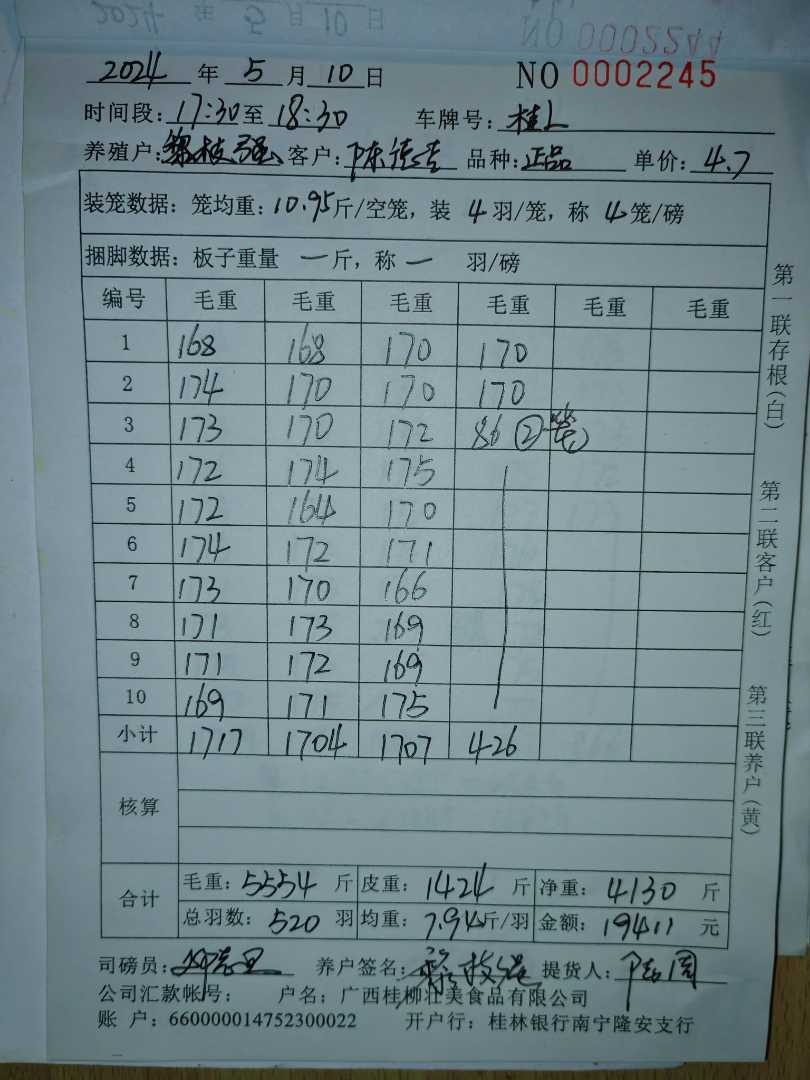 2024 年 5 月 10 日 NO 0002245
时间段: 17:30 至 18:30 车牌号: 桂L
养殖户: 枝强 客户: 陈 品种: 正品 单价: 4.7
装笼数据: 笼均重: 10.95 斤/空笼, 装 4 羽/笼, 称 4 笼/磅
捆脚数据: 板子重量 一 斤, 称 一 羽/磅
编号 毛重 毛重 毛重 毛重 毛重 毛重
1 168 168 170 170
2 174 170 170 170
3 173 170 172 86 ②笼
4 172 174 175
5 172 164 170
6 174 172 171
7 173 170 166
8 171 173 169
9 171 172 169
10 169 171 175
小计 1717 1704 1707 426
核算
合计 毛重: 5554 斤 皮重: 1424 斤 净重: 4130 斤
总羽数: 520 羽 均重: 7.94 斤/羽 金额: 19411 元
司磅员: 养户签名: 枝强 提货人:
公司汇款帐号: 户名: 广西桂柳壮美食品有限公司
账 户: 660000014752300022 开户行: 桂林银行南宁隆安支行
第一联存根(白)
第二联客户(红)
第三联养户(黄)